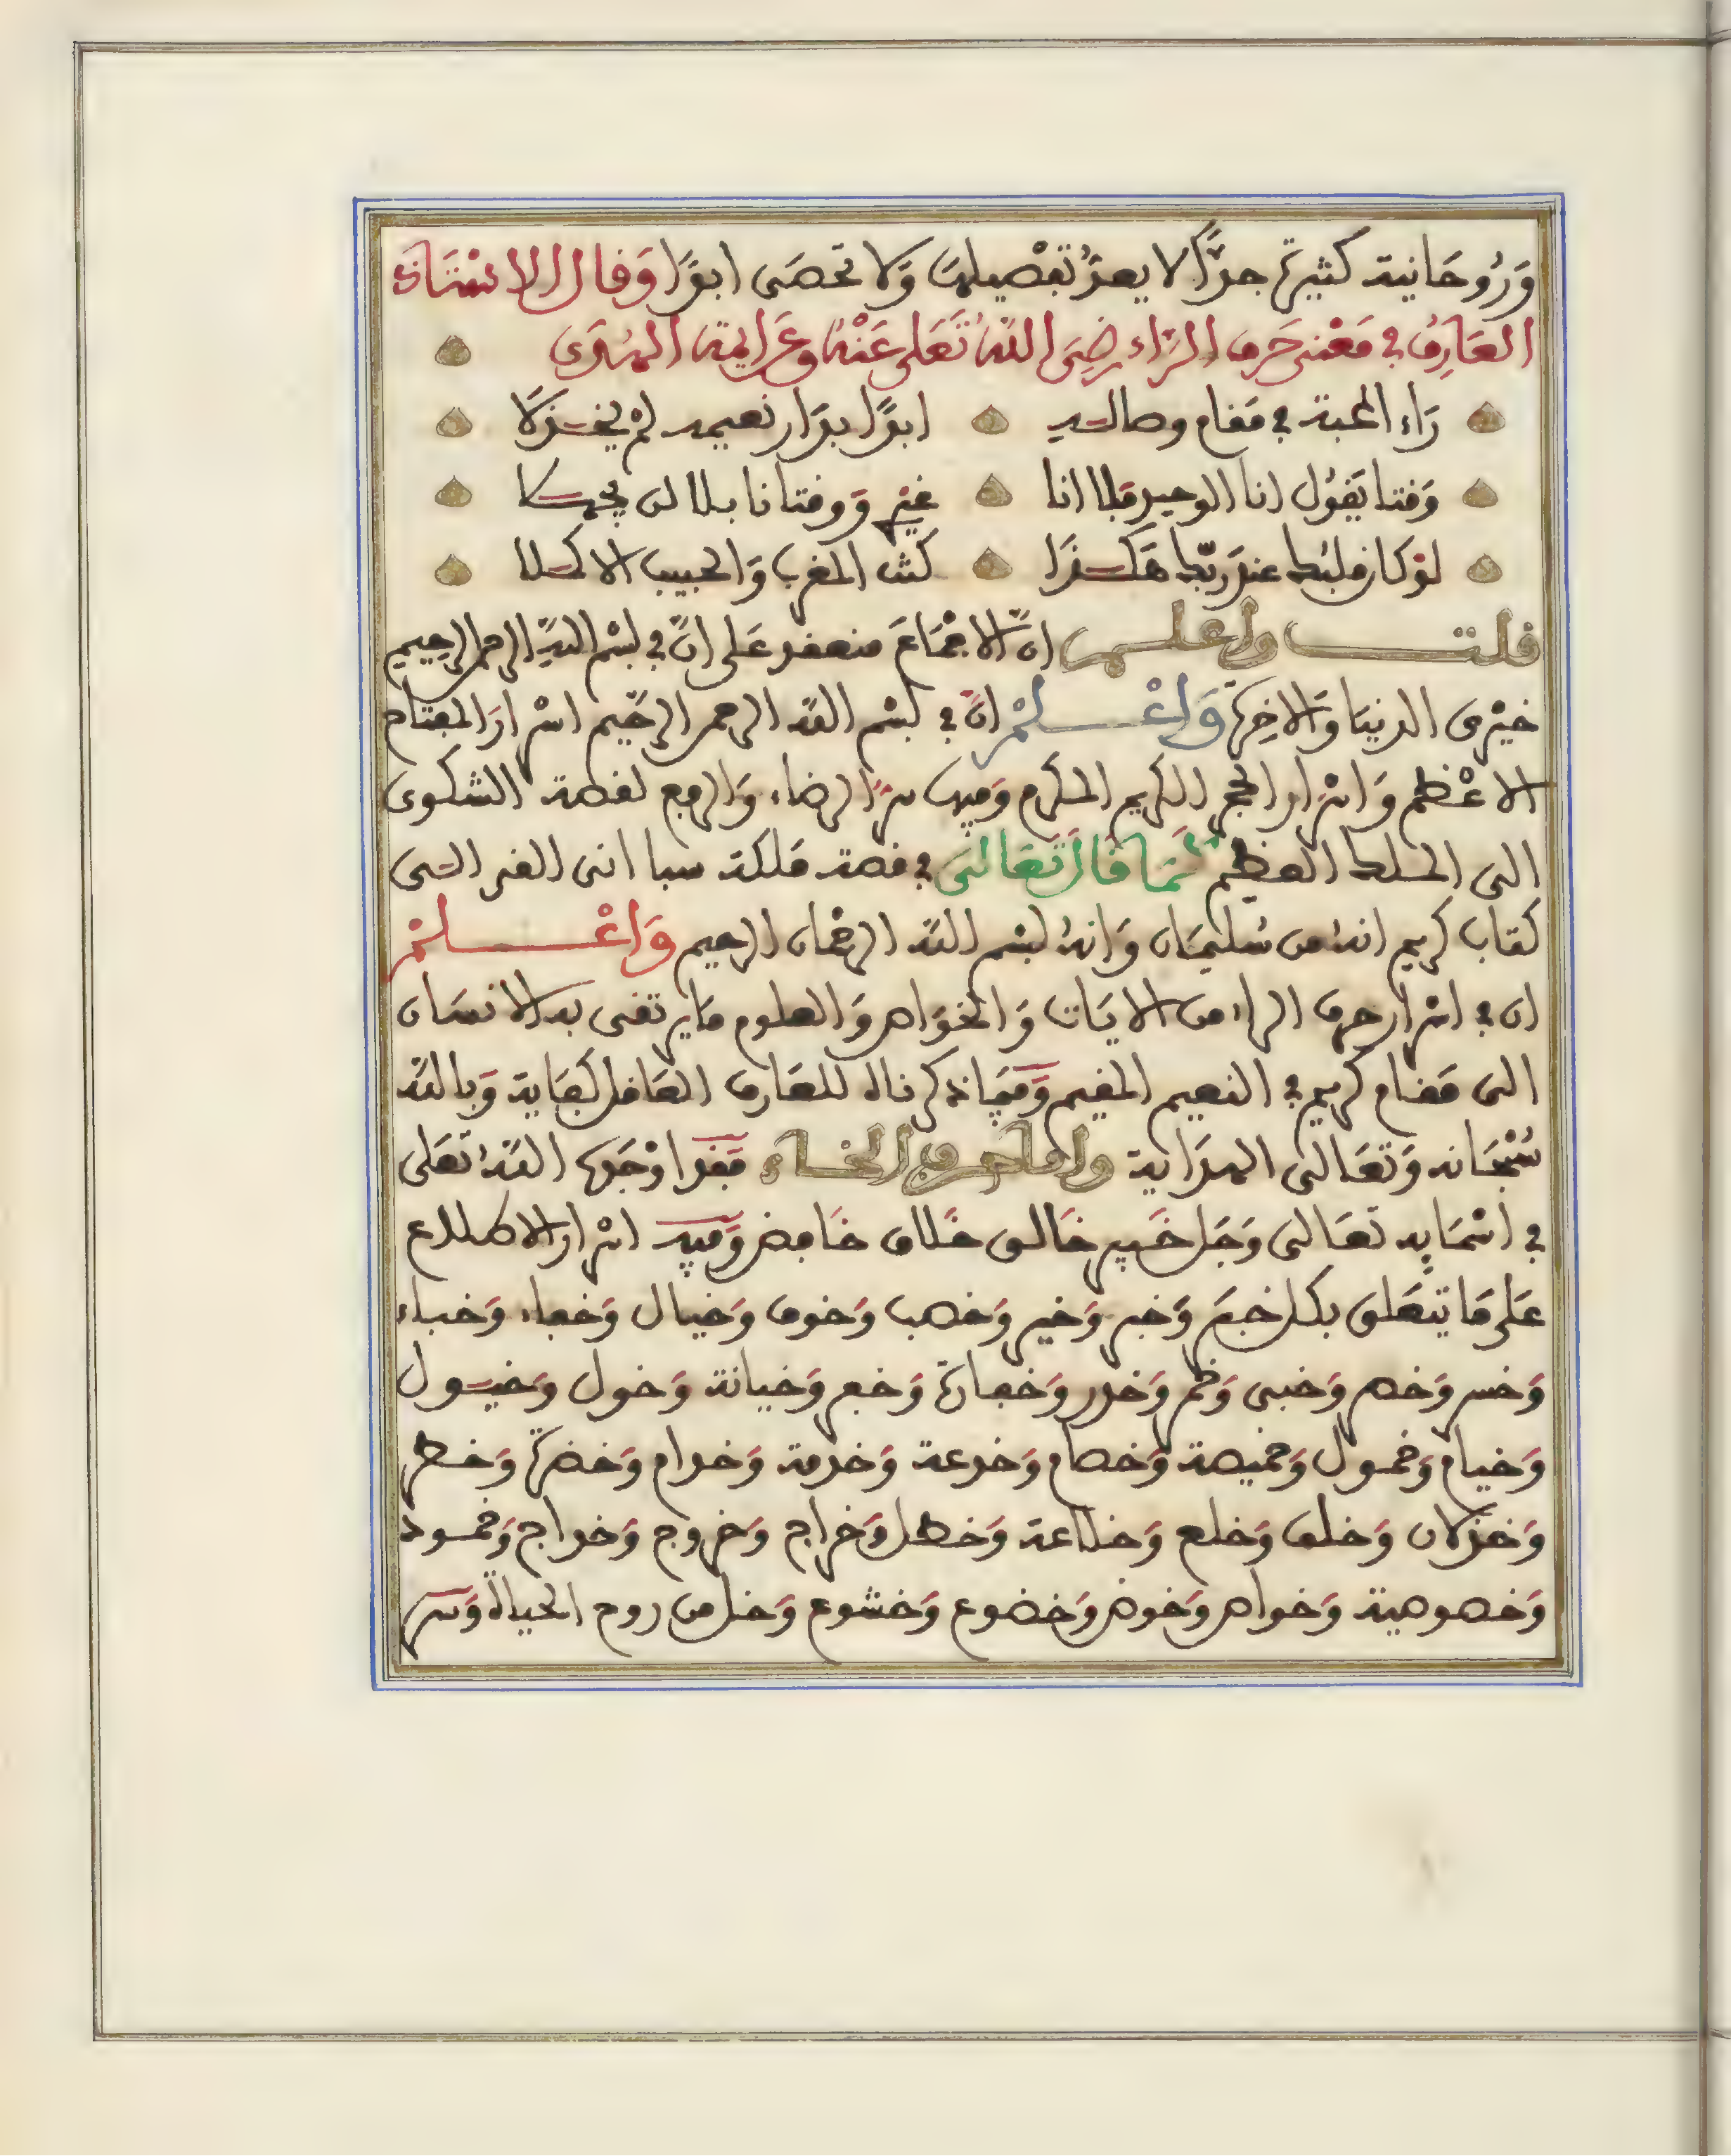 وَرُوحَانية كثيرة جدًّا لا يعدُّ تفْصيلها وَلا تحصَى ابدًا وَقال الاسْتَاذ
العَارِفُ في مَعْنى حَرف الرَّاء رضِيَ اللهُ تَعَلى عَنْهُ وعَرايه الهُدَى
رَاء المحبة في مَقام وصاله ابدًا بدَار نعيمه لمْ يخذلا
وَقتا يَقُول انا الوحيد فلا انا غيْر وَوقتا نا بلا لن يجهلا
لوْ كان قلبُك عندَ ربّك هَكذَا كنت المقرب وَالحبيب الاكملا
قلت واعلم انَّ الاجْمَاعَ منعقد عَلى انَّ في بسْم اللهِ الرحمن الرحِيمِ
خيْرى الدنيَا وَالاخِرَة وَاعْلمْ انَّ في بسْم الله الرحمن الرحِيم اسْرارَ المفتاح
الاعْظم وَاسْرار الحجر الكريم المكرم وَفيها سرّ الرضاء وَالرفع لقصة الشكوى
الى الملك العظيم كمَا قالَ تَعَالىَ في قصة مَلكة سبا انى القى الى
كتاب كريم انهُ من سُليمَان وَانهُ بسْم الله الرحْمان الرحيم وَاعْلمْ
ان في اسْرار حرف الراء من الايَات وَالخوَاص وَالعلوم مَا يرتقى به الانسَان
الى مَقام كريم في النعيم المقيم وَفيمَا ذكرناه للعَارف العَاقل كفَاية وَبالله
سُبْحَانه وَتعَالى الهدَاية وامَا حرف الخَاء فَقد اوْجَدها اللهُ تعَلى
في اسْمَايِه تعَالى وَجَل خَبير خَالق خَلاق خَافض وَفيه اسْرار الاطلاع
عَلى مَا يتعَلق بكل خبَر وَخبر وَخير وَخصب وَخوف وَخيال وَخفاء وَخباء
وَخسر وَخصر وَخبى وَخمر وَخدر وَخفارة وَخفر وَخيانة وَخول وَخيول
وَخيام وَخمول وَخميصة وَخصام وَخدعة وَخدمة وَخدام وَخضرة وَخطر
وَخذلان وَخلق وَخلع وَخلاعة وَخطل وَخراج وَخروج وَخداج وَخمود
وَخصوصية وَخواص وَخوض وَخضوع وَخشوع وَخل من روح الحياة وَسر